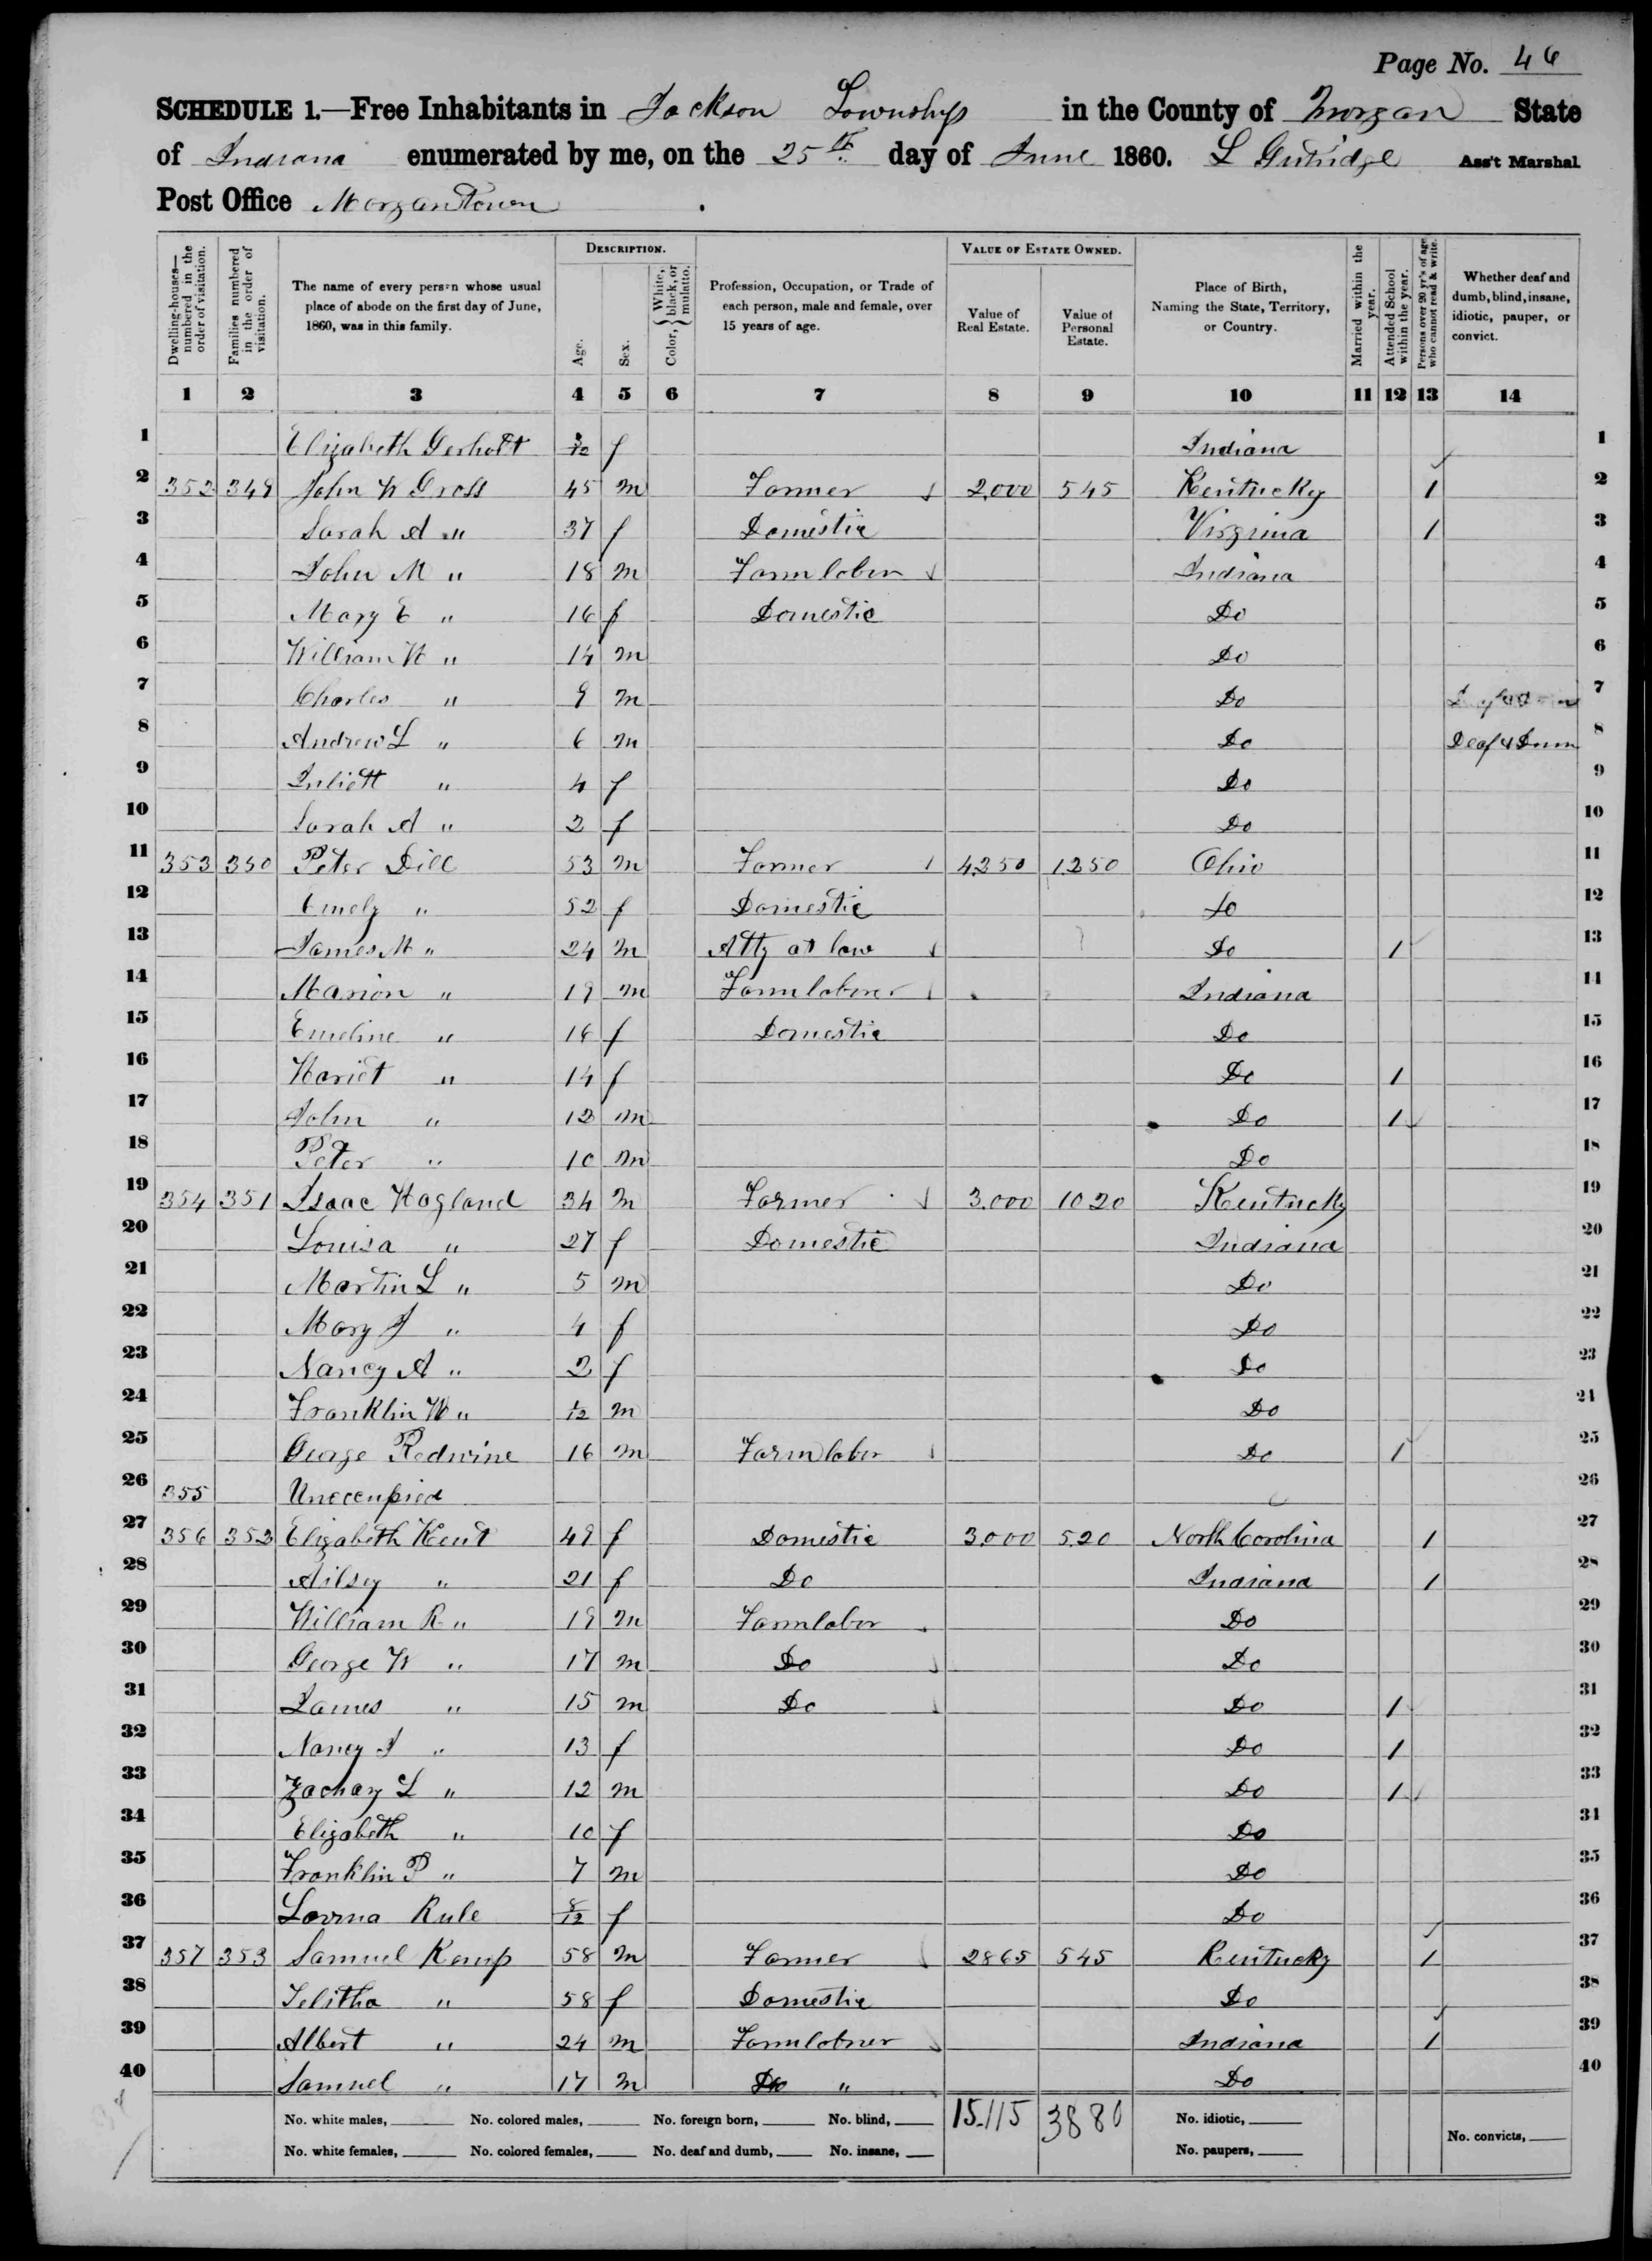 Page No. 46
SCHEDULE 1.—Free Inhabitants in Jackson Township in the County of Morgan State
of Indiana enumerated by me, on the 25th day of June 1860. L Gutridge Ass't Marshal
Post Office Morgantown
DESCRIPTION. VALUE OF ESTATE OWNED.
Dwelling-houses—numbered in the order of visitation. Families numbered in the order of visitation. The name of every person whose usual place of abode on the first day of June, 1860, was in this family. Age. Sex. Color, White, black, or mulatto. Profession, Occupation, or Trade of each person, male and female, over 15 years of age. Value of Real Estate. Value of Personal Estate. Place of Birth, Naming the State, Territory, or Country. Married within the year. Attended School within the year. Persons over 20 yr's of age who cannot read & write. Whether deaf and dumb, blind, insane, idiotic, pauper, or convict.
1 2 3 4 5 6 7 8 9 10 11 12 13 14
1 Elizabeth 3/12 f Indiana 1
2 352 349 John W Gross 45 m Farmer 2,000 545 Kentucky 1 2
3 Sarah A " 37 f Domestic Virginia 1 3
4 John M " 18 m Farm labor Indiana 4
5 Mary E " 16 f Domestic Do 5
6 William W " 14 m Do 6
7 Charles " 9 m Do 7
8 Andrew L " 6 m Do Deaf & Dum 8
9 Juliett " 4 f Do 9
10 Sarah A " 2 f Do 10
11 353 350 Peter Dill 53 m Farmer 4250 1250 Ohio 11
12 Emely " 52 f Domestic Do 12
13 James M " 24 m Atty at law Do 1 13
14 Marion " 19 m Farm laborer Indiana 14
15 Emeline " 16 f Domestic Do 15
16 Hariet " 14 f Do 1 16
17 John " 12 m Do 1 17
18 Peter " 10 m Do 18
19 354 351 Isaac Hagland 34 m Farmer 3.000 1020 Kentucky 19
20 Louisa " 27 f Domestic Indiana 20
21 Martin L " 5 m Do 21
22 Mary J " 4 f Do 22
23 Nancy A " 2 f Do 23
24 Franklin W " 1/12 m Do 24
25 George Redwine 16 m Farm labor Do 1 25
26 355 Unoccupied 26
27 356 352 Elizabeth Kent 49 f Domestic 3000 520 North Carolina 1 27
28 Ailsey " 21 f Do Indiana 1 28
29 William R " 19 m Farm labor Do 29
30 George W " 17 m Do Do 30
31 James " 15 m Do Do 1 31
32 Nancy J " 13 f Do 1 32
33 Zachary L " 12 m Do 1 33
34 Elizabeth " 10 f Do 34
35 Franklin P " 7 m Do 35
36 Lovina Rule 8/12 f Do 36
37 357 353 Samuel Kemp 58 m Farmer 2865 545 Kentucky 1 37
38 Telitha " 58 f Domestic Do 38
39 Albert " 24 m Farm laborer Indiana 1 39
40 Samuel " 17 m Do " Do 40
No. white males, No. colored males, No. foreign born, No. blind, 15.115 3880 No. idiotic,
No. white females, No. colored females, No. deaf and dumb, No. insane, No. paupers, No. convicts,